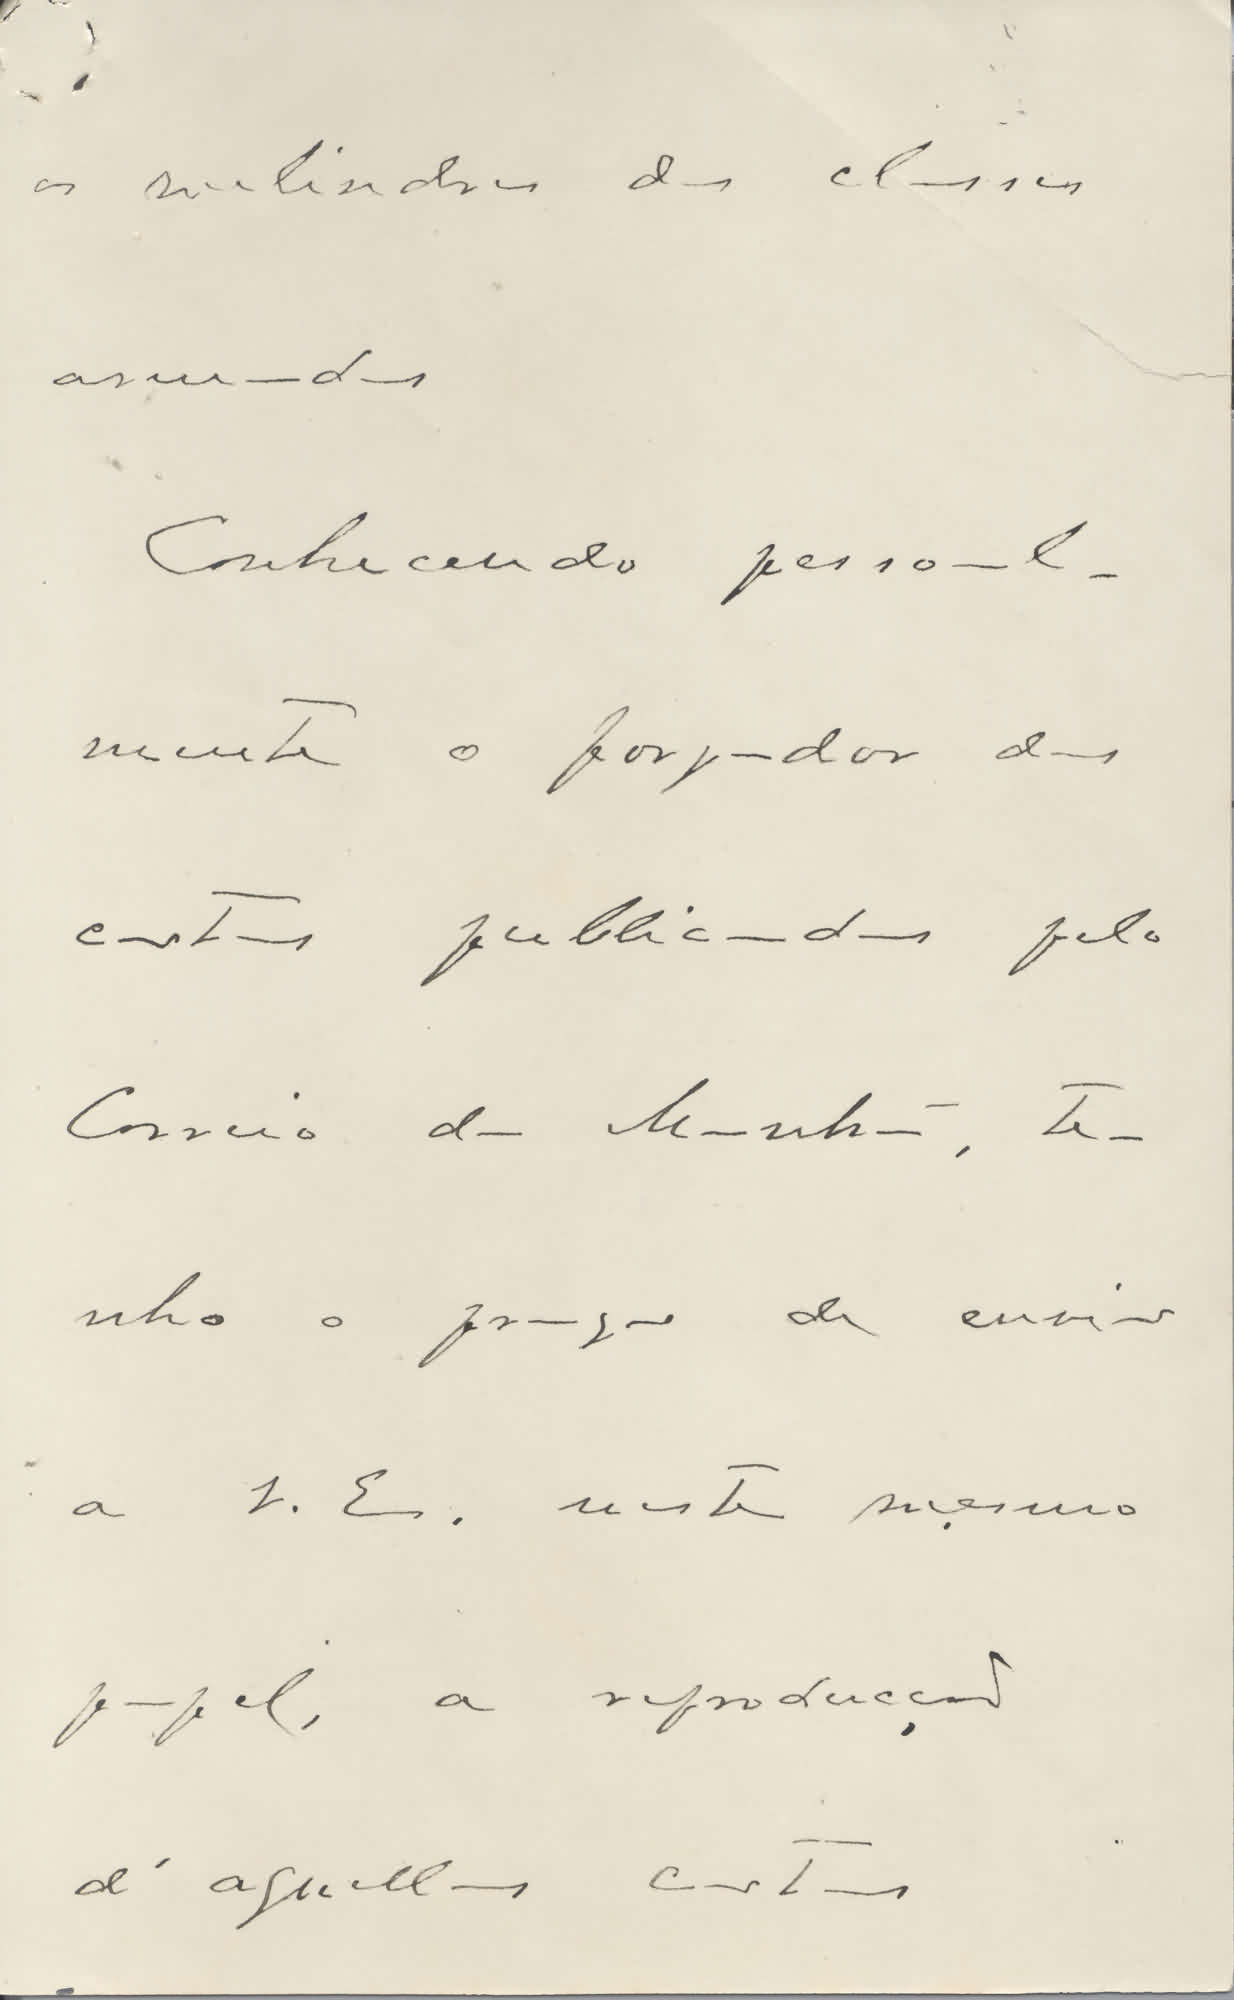 os melindres das classes
armadas
Conhecendo pessoal-
mente o forjador das
cartas publicadas pelo
Correio da Manhã, te-
nho o prazer de enviar
a V. Ex. neste mesmo
papel, a reproducção
d'aquellas cartas